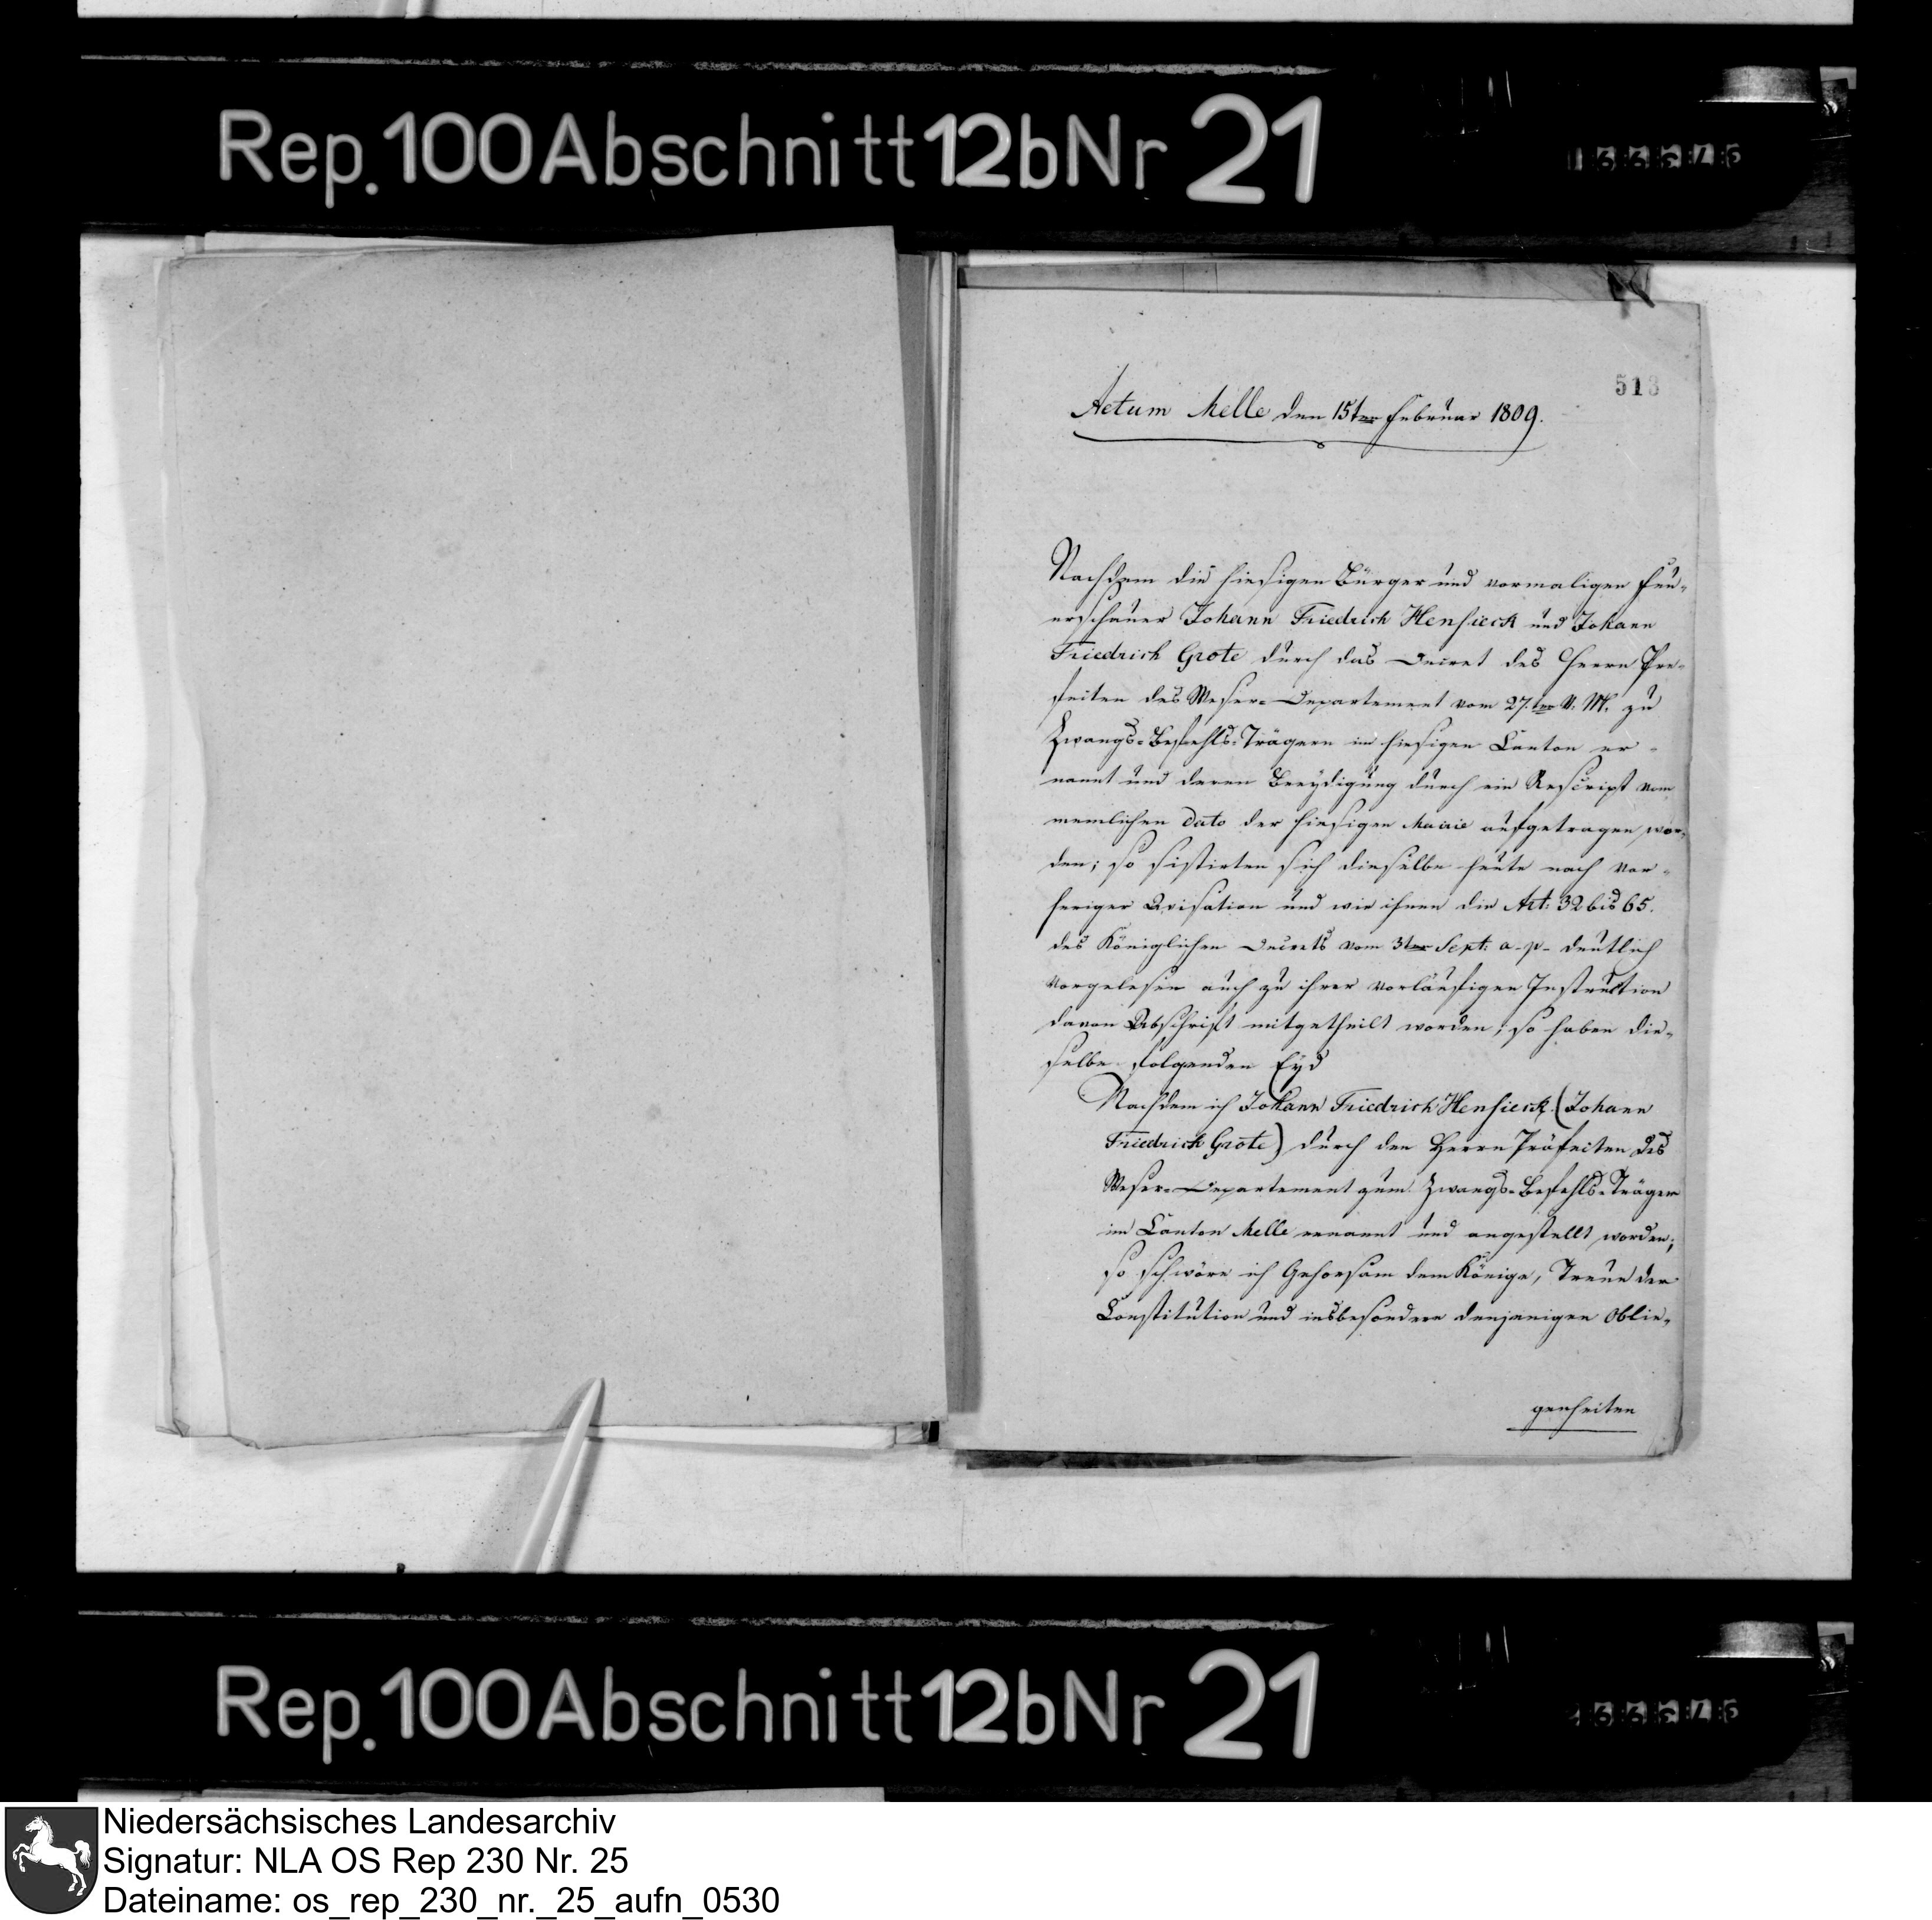 Rep. 100 Abschnitt 12b Nr 21
513
Actum Melle den 15ten Februar 1809.
Nachdem die hiesigen Bürger und vormaligen Feu-
erschauer Johann Friedrich Hensieck und Johann
Friedrich Grote durch das Decret des Herrn Pre-
fecten des Weser-Departement vom 27.ten v. M. zu
Zwangs-Befehls-Trägern im hiesigen Canton er-
nannt und deren Beeydigung durch ein Rescript vom
nemlichen dato der hiesigen Mairie aufgetragen wor-
den; so sistirten sich dieselbe heute nach vor-
heriger Avisation und wie ihnen die Art: 32 bis 65.
des Königlichen Decrets vom 3ten Sept: a. p. deutlich
vorgelesen auch zu ihrer vorläufigen Instruction
davon Abschrift mitgetheilt worden; so haben die-
selbe folgenden Eyd
Nachdem ich Johann Friedrich Hensieck (Johann
Friedrich Grote) durch den Herrn Präfecten des
Weser-Departement zum Zwangs-Befehls-Träger
im Canton Melle ernannt und angestellt worden;
so schwöre ich Gehorsam dem Könige, Treue der
Constitution und insbesondere denjenigen Oblie-
genheiten
Rep. 100 Abschnitt 12b Nr 21
Niedersächsisches Landesarchiv
Signatur: NLA OS Rep 230 Nr. 25
Dateiname: os_rep_230_nr._25_aufn_0530